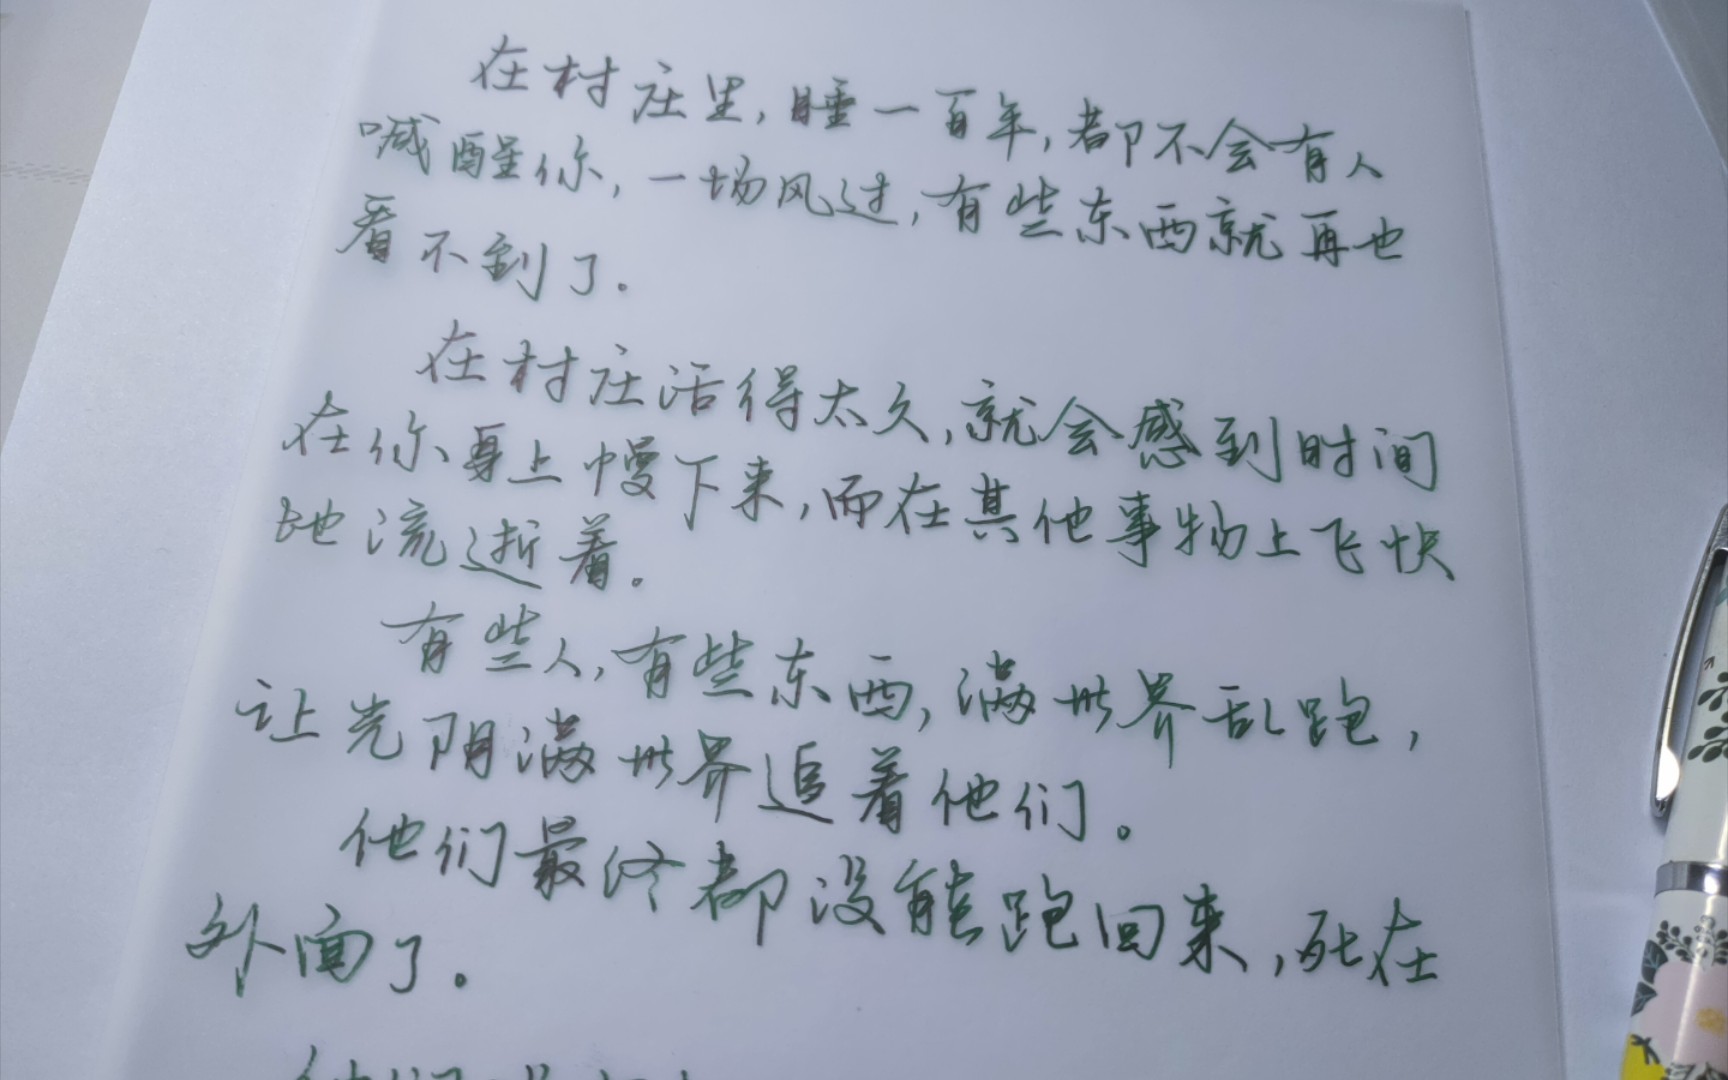 在村庄里,睡一百年,都不会有人
喊醒你,一场风过,有些东西就再也
看不到了.
在村庄活得太久,就会感到时间
在你身上慢下来,而在其他事物上飞快
地流逝着。
有些人,有些东西,满世界乱跑,
让光阴满世界追着他们。
他们最终都没能跑回来,死在
外面了。